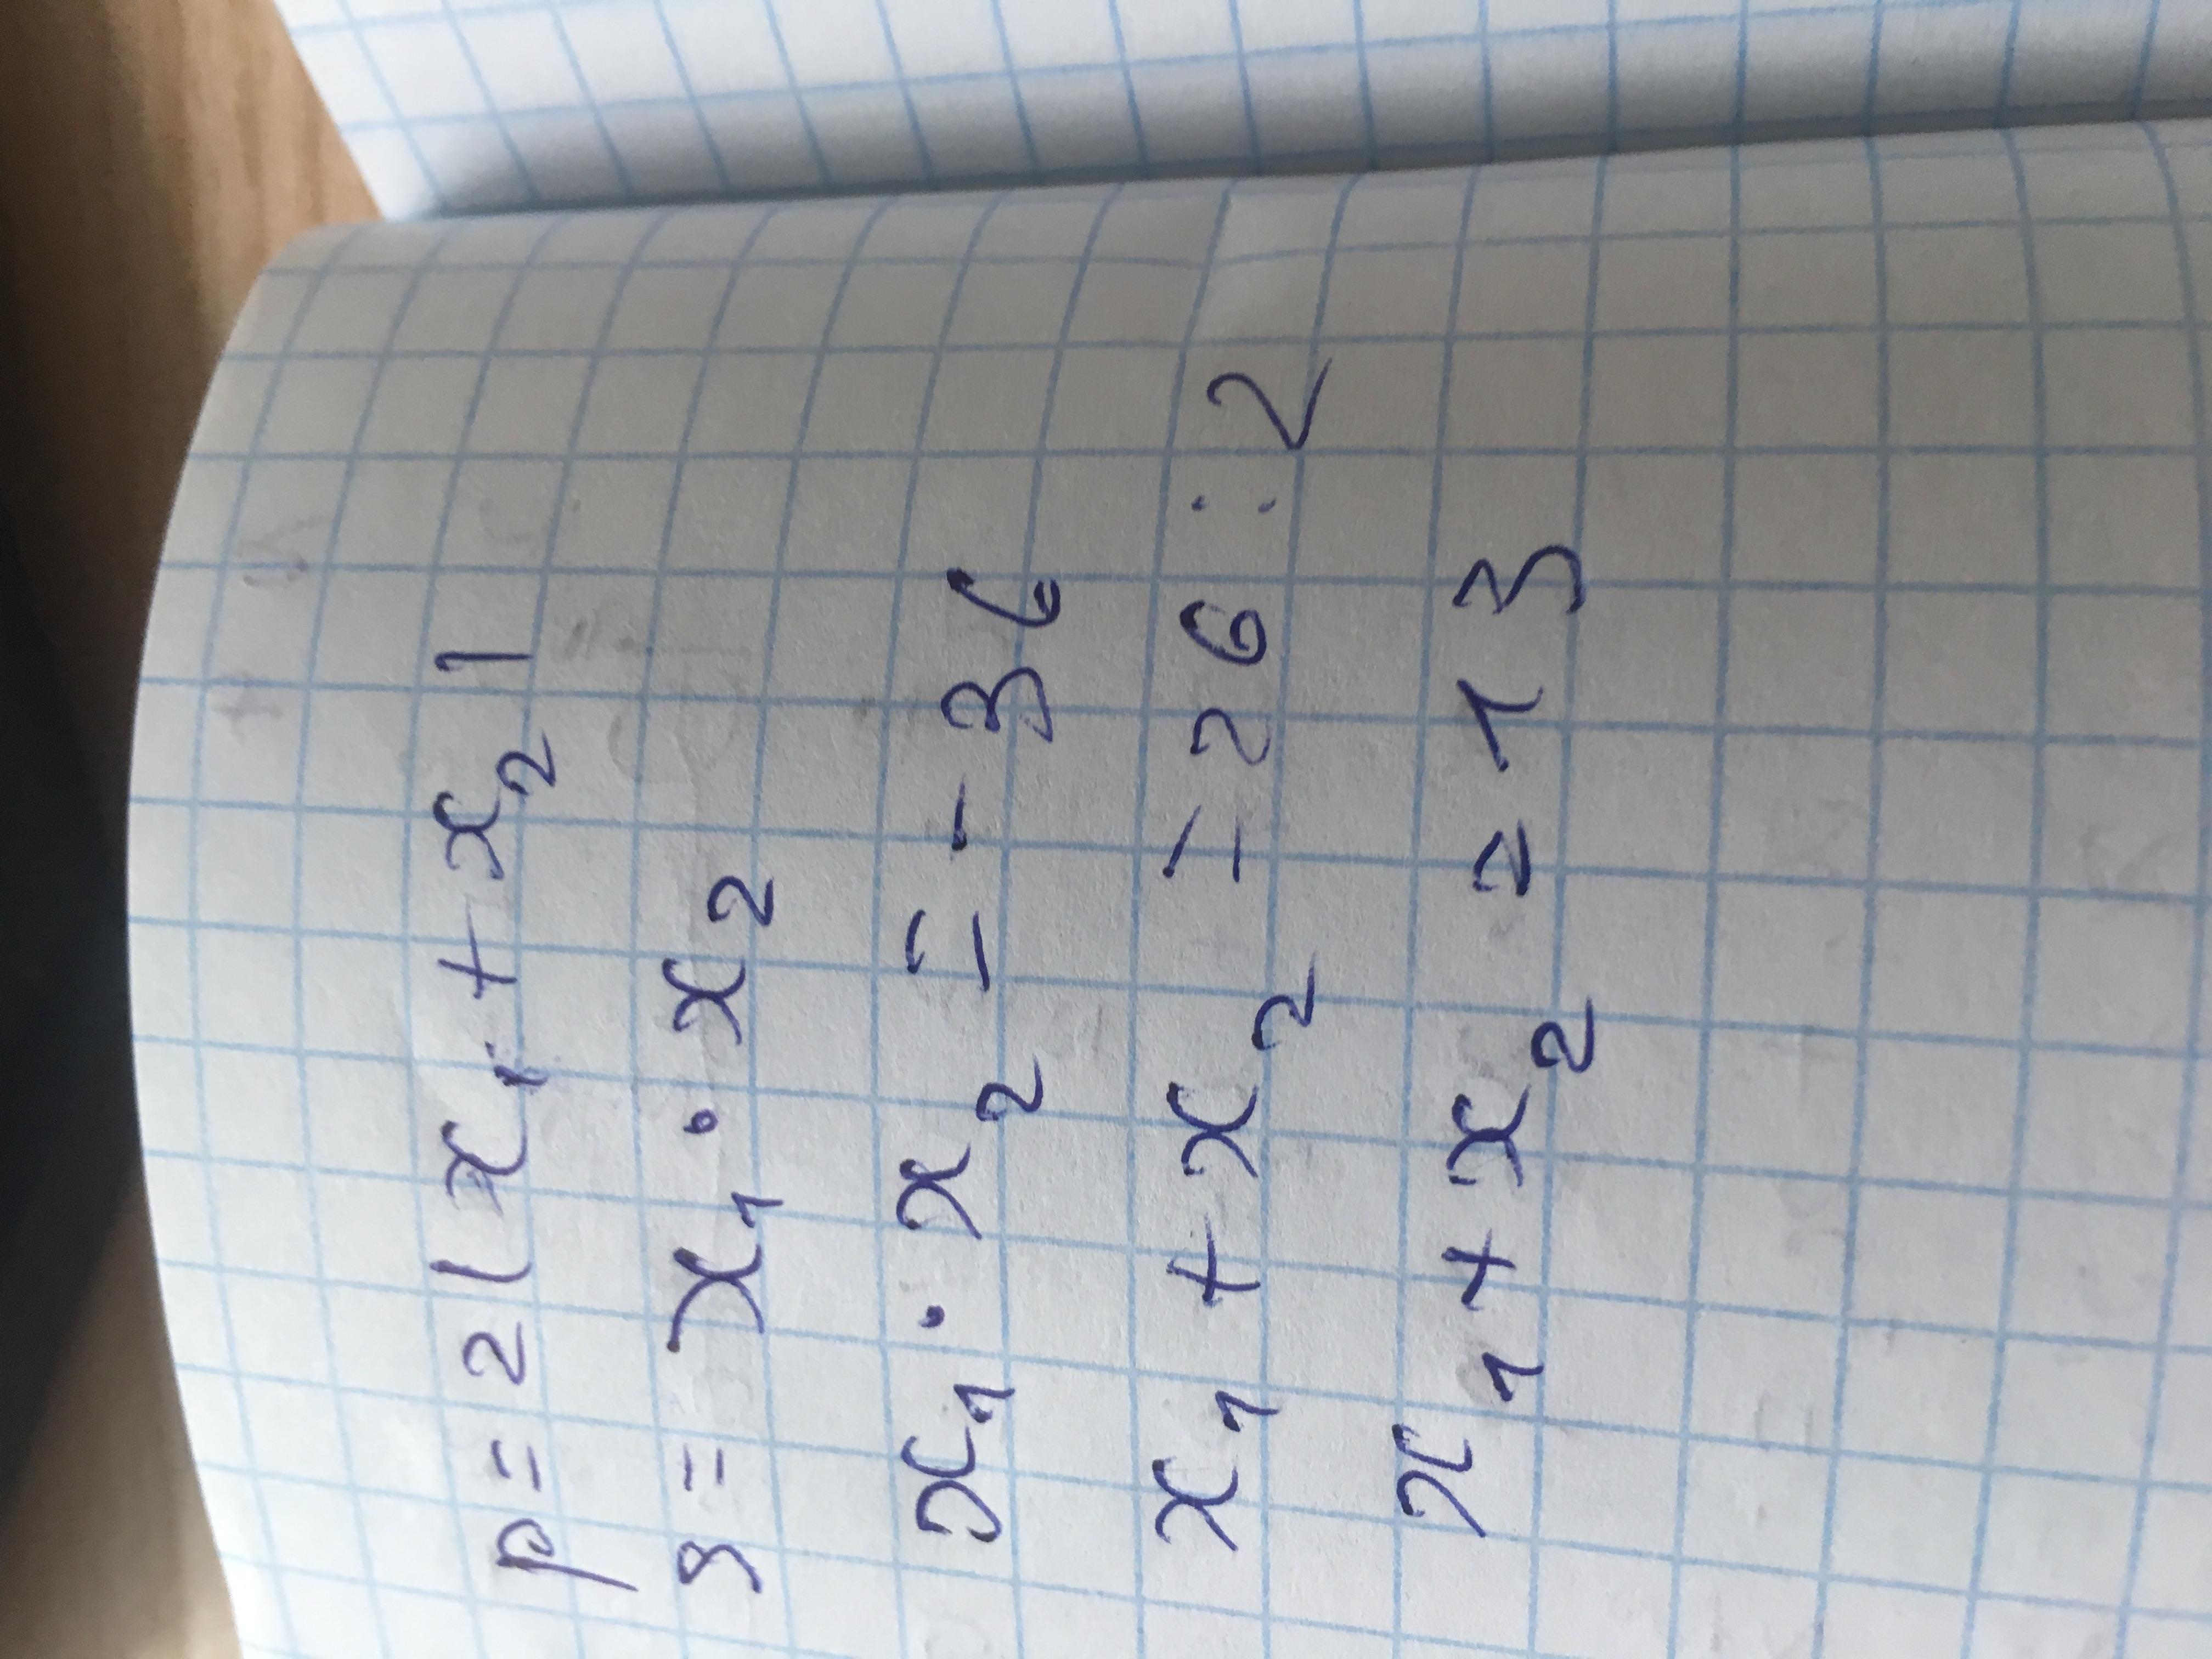 p = 2(x₁ + x₂)
S = x₁ · x₂
x₁ · x₂ = - 36
x₁ + x₂ = 26 : 2
x₁ + x₂ = 13